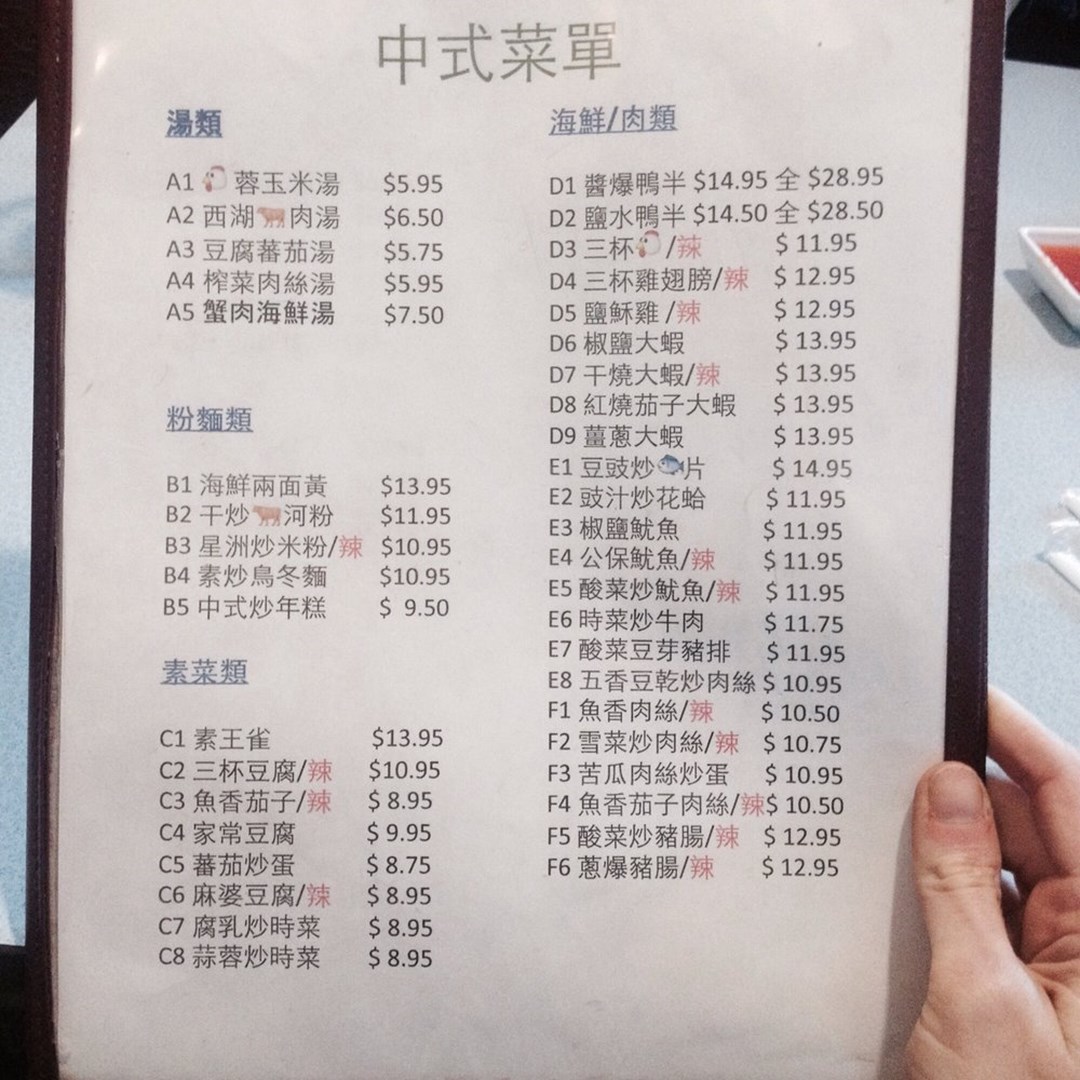 中式菜單
湯類
A1 🐔蓉玉米湯 $5.95
A2 西湖🐄肉湯 $6.50
A3 豆腐蕃茄湯 $5.75
A4 榨菜肉絲湯 $5.95
A5 蟹肉海鮮湯 $7.50
粉麵類
B1 海鮮兩面黃 $13.95
B2 干炒🐄河粉 $11.95
B3 星洲炒米粉/辣 $10.95
B4 素炒鳥冬麵 $10.95
B5 中式炒年糕 $ 9.50
素菜類
C1 素王雀 $13.95
C2 三杯豆腐/辣 $10.95
C3 魚香茄子/辣 $ 8.95
C4 家常豆腐 $ 9.95
C5 蕃茄炒蛋 $ 8.75
C6 麻婆豆腐/辣 $ 8.95
C7 腐乳炒時菜 $ 8.95
C8 蒜蓉炒時菜 $ 8.95
海鮮/肉類
D1 醬爆鴨半 $14.95 全 $28.95
D2 鹽水鴨半 $14.50 全 $28.50
D3 三杯🐔/辣 $ 11.95
D4 三杯雞翅膀/辣 $ 12.95
D5 鹽穌雞 /辣 $ 12.95
D6 椒鹽大蝦 $ 13.95
D7 干燒大蝦/辣 $ 13.95
D8 紅燒茄子大蝦 $ 13.95
D9 薑蔥大蝦 $ 13.95
E1 豆豉炒🐟片 $ 14.95
E2 豉汁炒花蛤 $ 11.95
E3 椒鹽魷魚 $ 11.95
E4 公保魷魚/辣 $ 11.95
E5 酸菜炒魷魚/辣 $ 11.95
E6 時菜炒牛肉 $ 11.75
E7 酸菜豆芽豬排 $ 11.95
E8 五香豆乾炒肉絲 $ 10.95
F1 魚香肉絲/辣 $ 10.50
F2 雪菜炒肉絲/辣 $ 10.75
F3 苦瓜肉絲炒蛋 $ 10.95
F4 魚香茄子肉絲/辣$ 10.50
F5 酸菜炒豬腸/辣 $ 12.95
F6 蔥爆豬腸/辣 $ 12.95